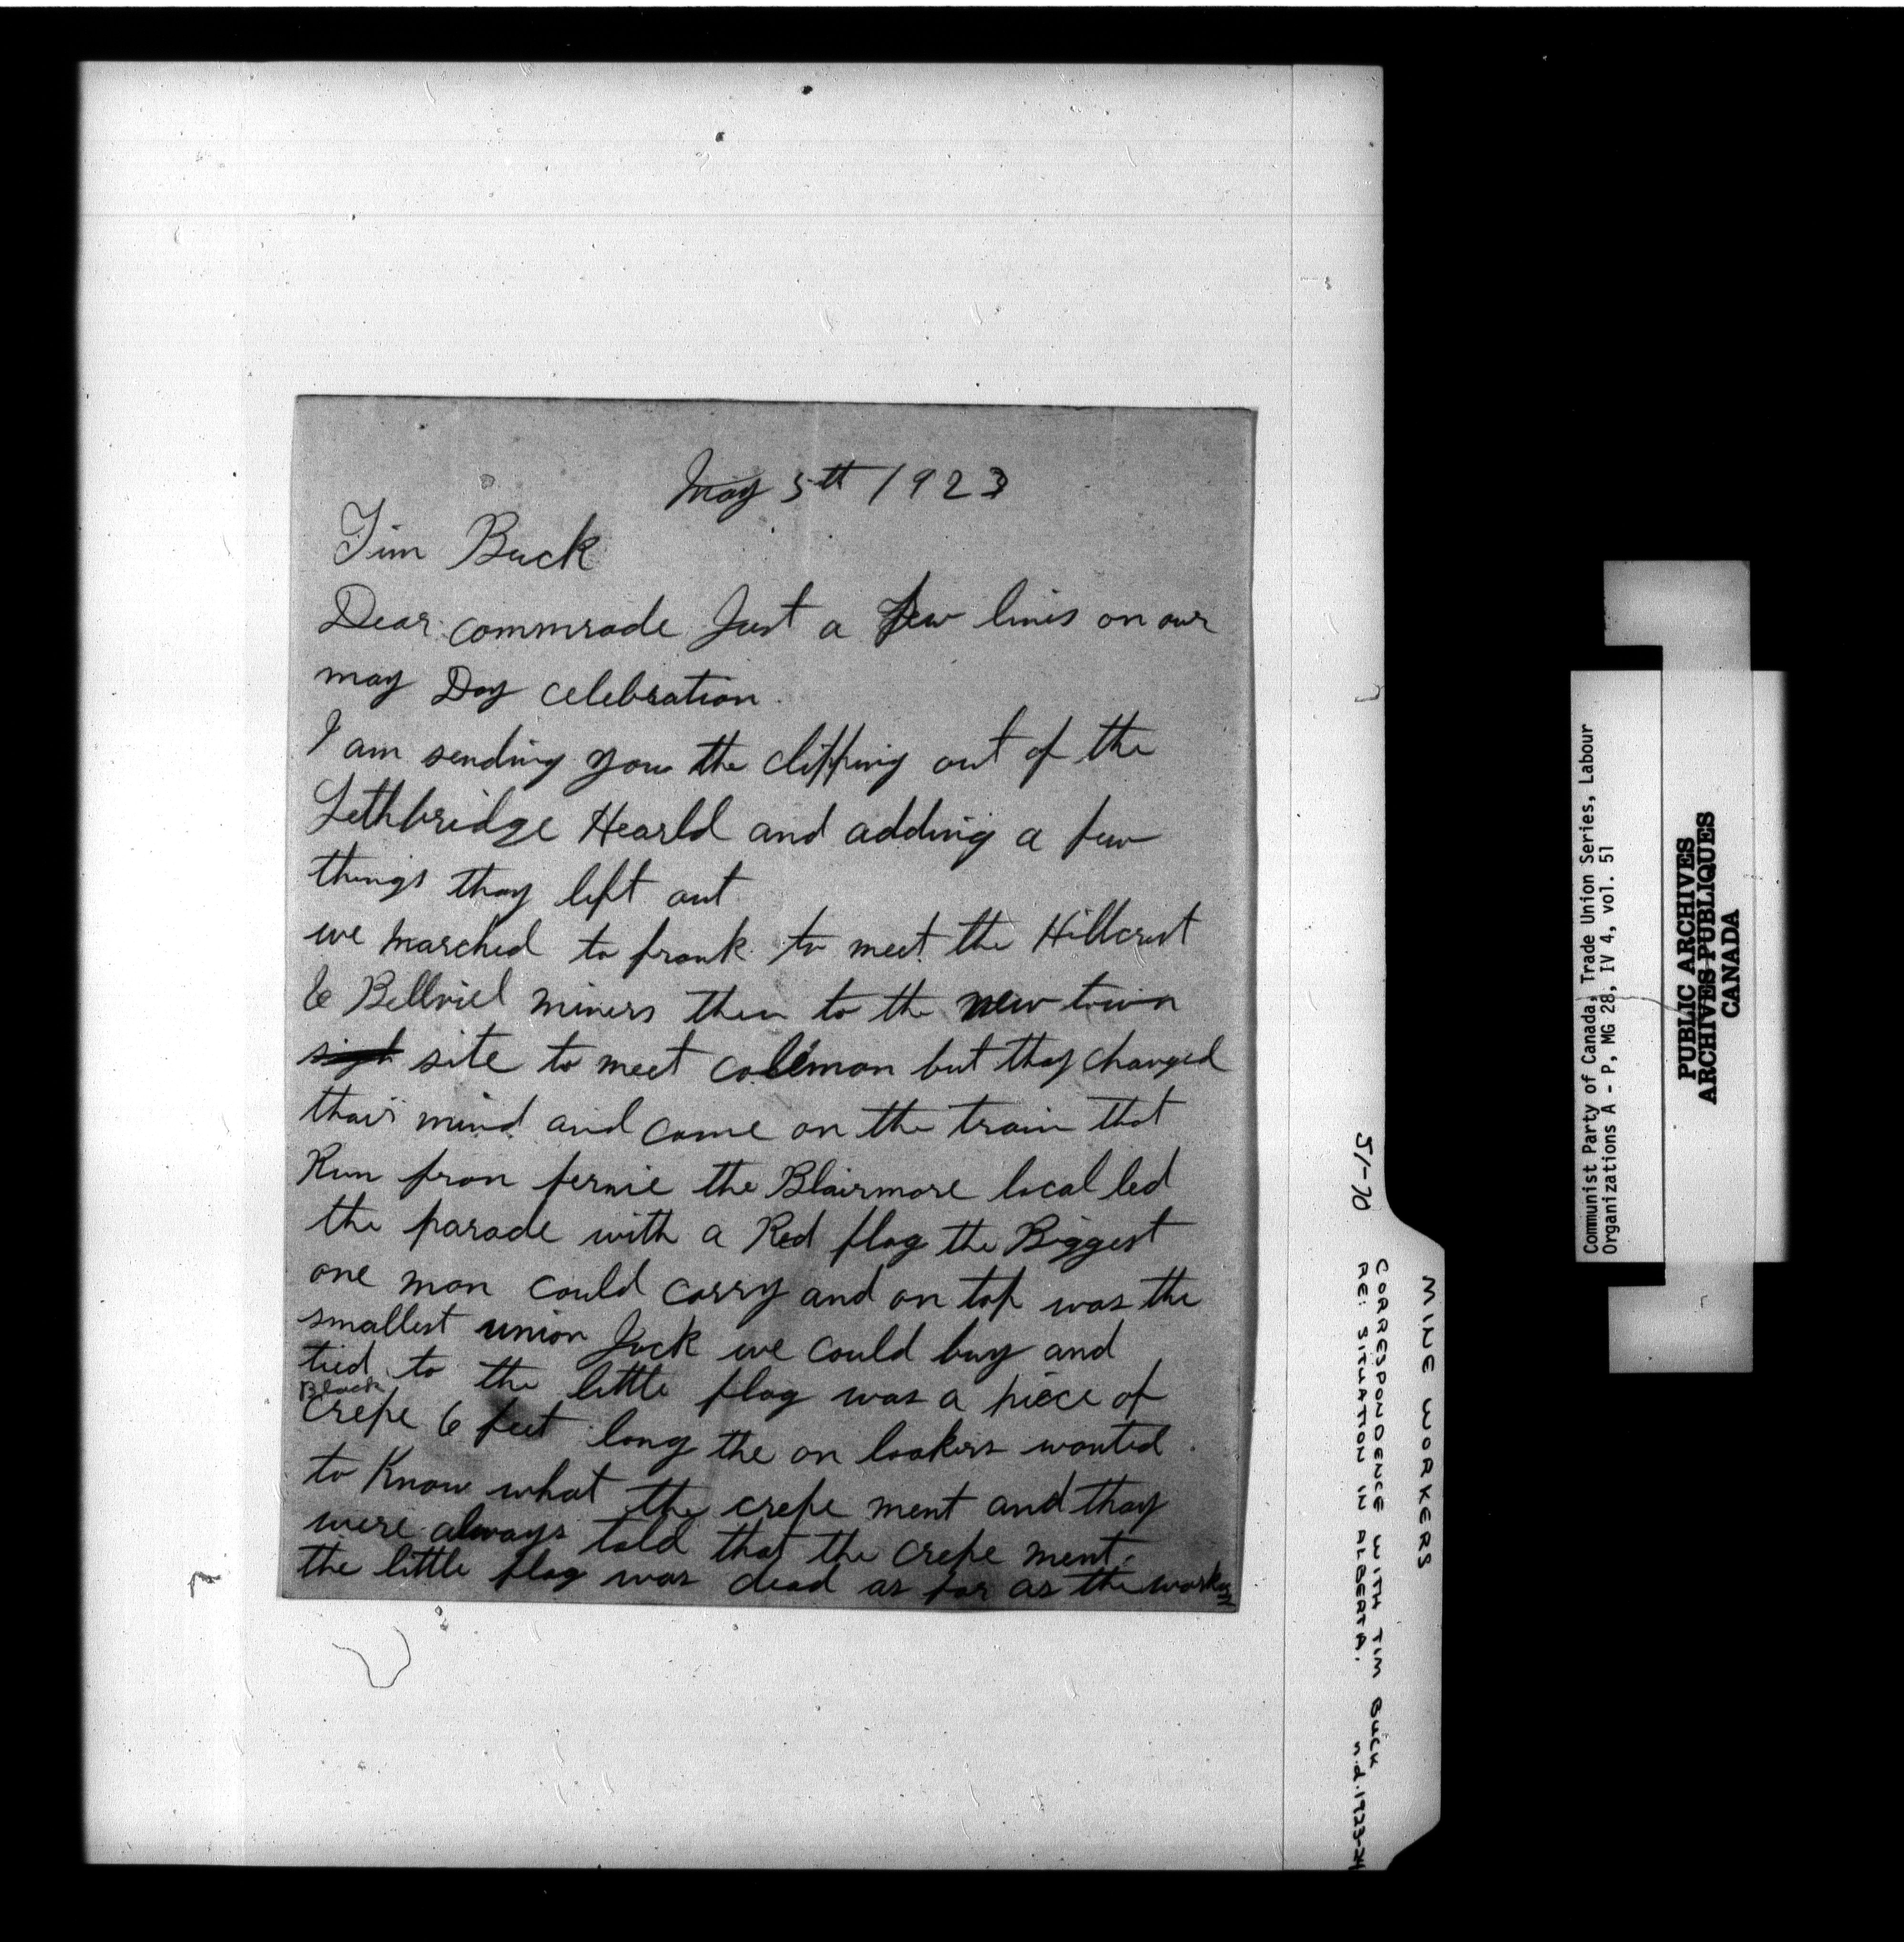 May 5th 1923
Tim Buck
Dear commrade Just a few lines on our
may Day celebration.
I am sending you the clipping out of the
Lethbridge Hearld and adding a few
things thay left out
we marched to frank to meet the Hillcrest
& Bellviel miners then to the new town
site to meet coleman but thay changed
thair mind and come on the train that
Run from fernie the Blairmore local led
the parade with a Red flag the Biggest
one man could carry and on top was the
smallest union Jack we could buy and
tied to the little flag was a piece of
Black
crepe 6 feet long the on lookers wanted
to Know what the crepe ment and thay
were always told that the crepe ment
the little flag was dead as far as the workers
51-70
MINE WORKERS
CORRESPONDENCE WITH TIM BUCK
RE: SITUATION IN ALBERTA.
n.d. 1923-24
Communist Party of Canada, Trade Union Series, Labour
Organizations A - P, MG 28, IV 4, vol. 51
PUBLIC ARCHIVES
ARCHIVES PUBLIQUES
CANADA